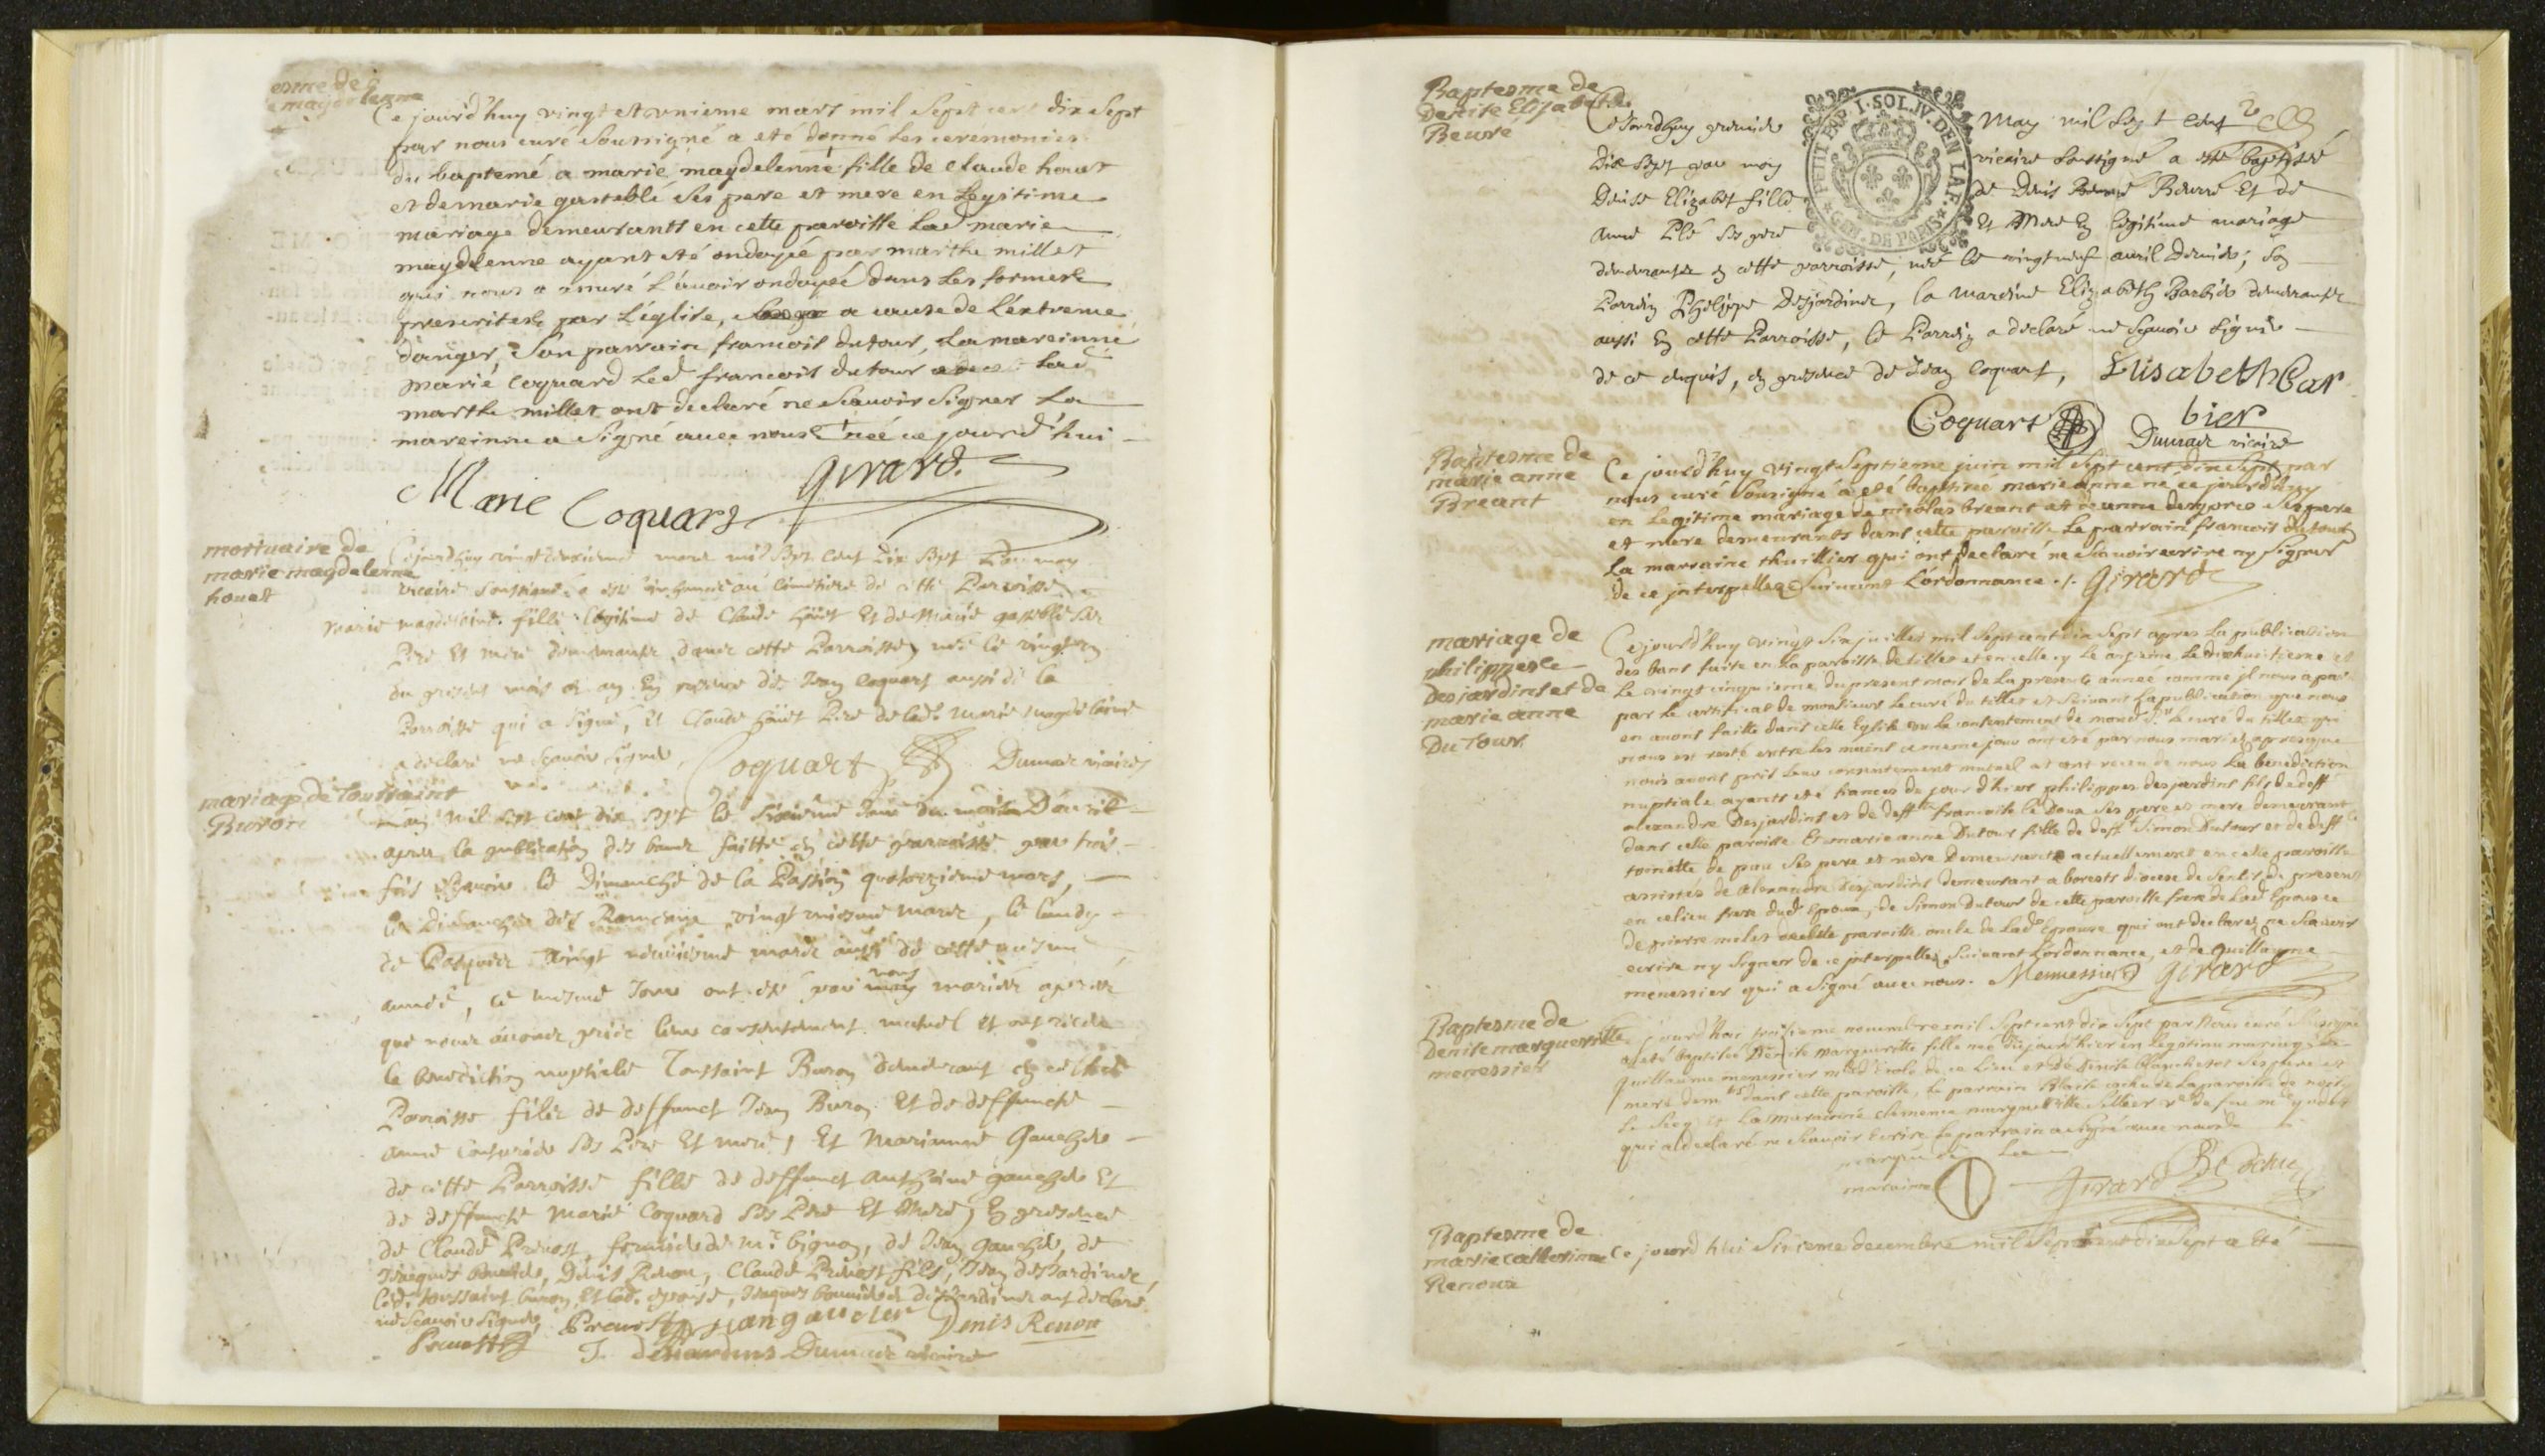 esme de
e magdelenne
Ce jourd'huy vingt et unieme mars mil Sept cent dix Sept
par nous curé Soussigné a eté donné les ceremonies
du baptemé a marie magdelenne fille de claude houet
et de marie gasteblé Ses pere et mere en Legitime
mariage demeurants en cette paroisse Lad marie
magdelenne ayant eté ondoyée par marthe millet
qui nous a assuré L'avoir ondoyée dans les formes
prescrites par L'église, a cause de L'extreme
danger, Son parrain francois dutour, La mareinne
marie coquard Led francois dutour Lad
marthe millet ont declaré ne Scavoir Signer La
mareinne a Signé avec nous née ce jourd'hui
girard.
Marie Coquart
mortuaire de
marie magdelenne
houet
Cejourdhuy vingt mars mil Sept Cent Dix Sept Par moy
vicaire soussigné a esté inhumée au cimetiere de cette Parroisse
marie magdelaine fille legitime de Claude houet Et de Marie gasteblé Ses
Pere Et mere demeurants dans cette Parroisse, née le vingt un
du present mois et an En presence de Jean Coquart aussi de la
Parroisse qui a signé, Et Claude houet Pere de lad. marie magdelaine
a declaré ne sçavoir signer. Coquart Dumar vicaire
mariage de Toussaint
Buron
mil sept cent dix sept le sixieme Jour du mois D'avril
apres la publication des bancs faitte en cette parroisse par trois
fois sçavoir le Dimanche de la Passion quatorzieme mars,
le Dimanche des Rameaux vingt unieme mars, le lundy
de Pasques vingt neuvieme mars aussi de cette mesme
année, ce mesme Jour ont esté par nous mariés apres
que nous avons pris leur consentement mutuel et ont receu
la benediction nuptiale Toussaint Buron demeurant en cette
Parroisse fils de deffunct Jean Buron Et de deffuncte
anne ses Pere Et mere, Et Marianne Gaucher
de cette Parroisse fille de deffunct Anthoine gaucher Et
de deffuncte Marie Coquard ses Pere Et Mere, En presence
de Claude Prevost, fermier de Mr. bignon, de Jean gaucher, de
Jacques, Denis Renou, Claude Prevost fils, Jean desJardines,
led. toussaint buron Et lad. espouse, Jacques ont declaré
ne sçavoir signer, Prevost jean gaucher Denis Renou
Prevost J. desiardins Dumar vicaire
Baptesme de
Denise Elizabeth
Beuré
PETIT PAP. I. SOL. IV. DEN LA F.
GEN. DE PARIS
Cejourdhuy premier May mil sept cent
dix Sept par moy vicaire soussigné a esté baptisée
Denise Elizabet fille de Denis Beuré Et de
Anne Plé ses pere Et Mere En legitime mariage
demeurants en cette parroisse, née le vingtneuf avril dernier; son
Parrein Phelippe Desjardines, la mareine Elizabeth Barbier demeurants
aussi En cette Parroisse, le Parrein a declaré ne sçavoir signer
de ce enquis, en presence de Jean Coquart, Elisabeth bar
bier
Coquart Dumar vicaire
Baptesme de
marie anne
Breant
Ce jourd'huy vingt Septieme juin mil Sept cent dix Sept par
nous curé Sousigné a eté baptisée marie anne né ce jourd'huy
en Legitime mariage de nicolas breant et d'anne Ses pere
et mere demeurants dans cette paroisse Le parrain francois dutour
La marraine thuillier qui ont declaré ne Scavoir ecrire ny Signer
de ce interpellez Suivant L'ordonnance. girard
mariage de
philippes
Desjardins et de
marie anne
Du Tour
Cejourd'huy vingt Six juillet mil Sept cent dix Sept apres La publication
des bans faite en La paroisse de tillet et en celle cy Le onzieme Le dixhuitieme et
Le vingt cinquieme du present mois de La presente année comme il nous a paru
par Le certificat de monsieur Le curé du tillet et Suivant La publication que nous
en avons faitte dans cette Eglise vu Le consentement de Le curé du tillet qui
nous est resté entre les mains ce meme jour ont eté par nous mariez apres que
nous avons pris Leur consentement mutuel et ont receu de nous La benediction
nuptiale ayants eté fiancés du jour d'hier philippes desjardins fils de deff
alexandre Desjardins et de deff francoise Le Doux Ses pere et mere demeurant
dans cette paroisse Et marie anne Dutour fille de deff Simon Dutour et de deff
toinette de pau Ses pere et mere Demeurante actuellement en cette paroisse
assistés de alexandre desjardins demeurant a borests diocese de Senlis de present
en ce lieu frere dud Epoux, de Simon Dutour de cette paroisse frere de Lad Epouse
De pierre millet de cette paroisse oncle de Lad Epouse qui ont declarez ne Scavoir
ecrire ny Signer de ce interpellez Suivant L'ordonnance, et de guillaume
menessier qui a Signé avec nous. Menessier girard
Baptesme de
Denise marguerite
menessier
Ce jourd'hui troisieme novembre mil Sept cent dix Sept par Nous curé Sousigné
a eté baptisée Denise marguerite fille née du jourd'hier en Legitime mariage de
guillaume menessier m d'Ecole de ce Lieu et De Denise blanchetot Ses pere et
mere dem dans cette paroisse, Le parrain Blaise de La paroisse de
La marainne clemence marguerite
qui a declaré ne Scavoir Ecrire Le parrain a Signé avec nous
marque de La
maraine
girard
Baptesme de
marie catherine
Renoux
Ce jourd'hui Sixieme decembre mil Sept cent dix Sept a Eté